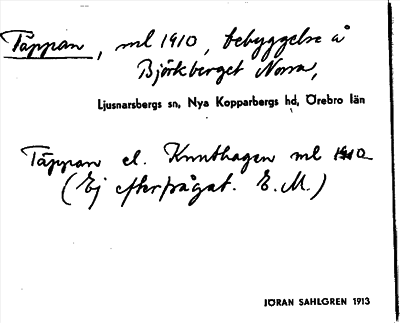 Täppan, ml 1910, bebyggelse å
Björkberget Norra,
Ljusnarsbergs sn, Nya Kopparbergs hd, Örebro län
Täppan el. Knuthagen ml 1910
(Ej efterfrågat. E. M.)
JÖRAN SAHLGREN 1913